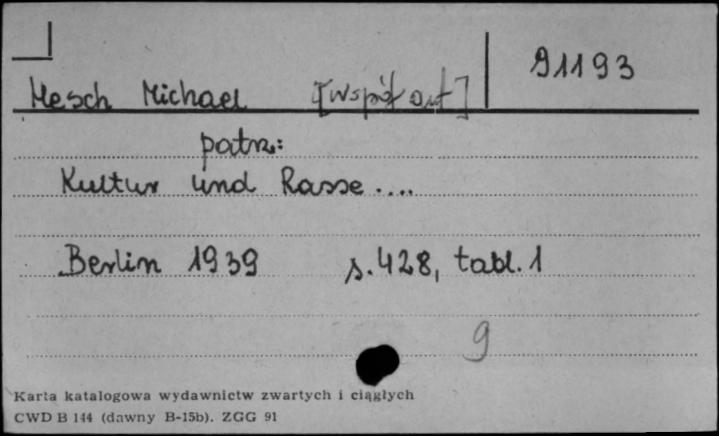 91193
Hesch Michael [współ aut]
patrz:
Kultur und Rasse ....
Berlin 1939 s. 428, tabl. 1
9
Karta katalogowa wydawnictw zwartych i ciągłych
CWD B 144 (dawny B-15b). ZGG 91